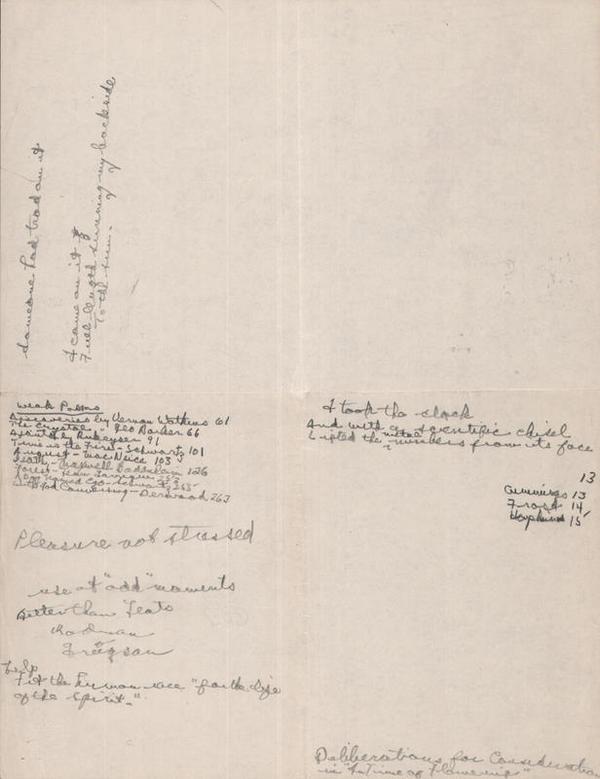 someone had trod on it
I came on it
Full length sunning my backside
To the sun.
Weak Poems
Discoveries by Vernon Watkins 61
The Crystal " Geo Barker 66
by Rukeyser 91
Time is the First - Schwartz 101
August - MacNeice 103
Death - Maxwell Bodenheim 126
Ego - Schwartz
Canvasing - Derwood 263
Pleasure not stressed
use at "odd" moments
Better than Yeats
Rodman
help
Fit the human race "for the life
of the spirit."
I took the clock
And with a scientific chisel
Lifted the metal numbers from its face
13
Cummings 13
Frost 14
Hopkins 15
Deliberations for Consideration
in "A Time of Flowering"